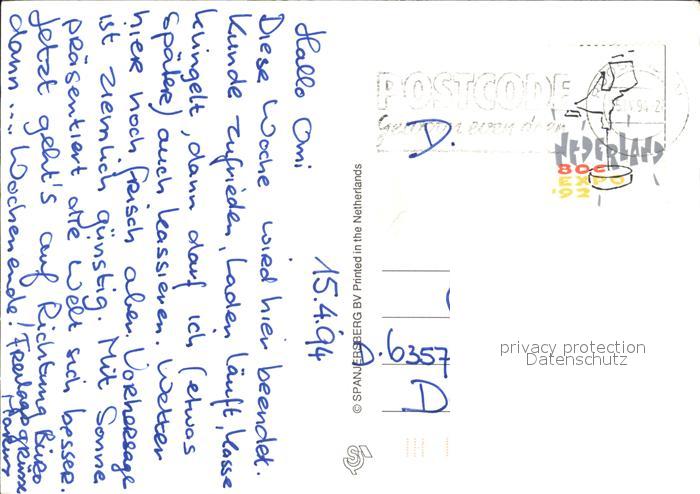 15.4.94
Hallo Omi
Diese Woche wird hier beendet.
Kunde zufrieden, Laden läuft, Kasse
klingelt, dann darf ich (etwas
später) auch kassieren. Wetter
hier noch frisch aber Vorhersage
ist ziemlich günstig. Mit Sonne
präsentiert die Welt sich besser.
Jetzt geht's auf Richtung Büro
dann .... Wochenende! Freitagsgrüsse
Markus
© SPANJERSBERG BV Printed in the Netherlands
POSTCODE
even
NEDERLAND
80C
EXPO
'92
D.
D.6357
A
privacy protection
Datenschutz